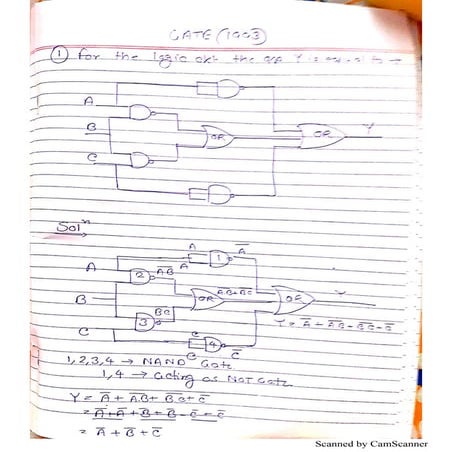 GATE (1993)
① For the logic ckt the o/p Y is
A
B
C
OR
OR
Y
Solⁿ
A
A̅
A
1
A
2
A̅B̅
B
OR
A̅B̅+B̅C̅
OR
Y
3
B̅C̅
C
C
4
C
C̅
Y = A̅ + A̅B̅ + B̅C̅ + C̅
1, 2, 3, 4 → NAND Gate
1, 4 → acting as NOT Gate
Y = A̅ + A̅B̅ + B̅C̅ + C̅
= A̅ + A̅ + B̅ + B̅ + C̅ + C̅
= A̅ + B̅ + C̅
Scanned by CamScanner